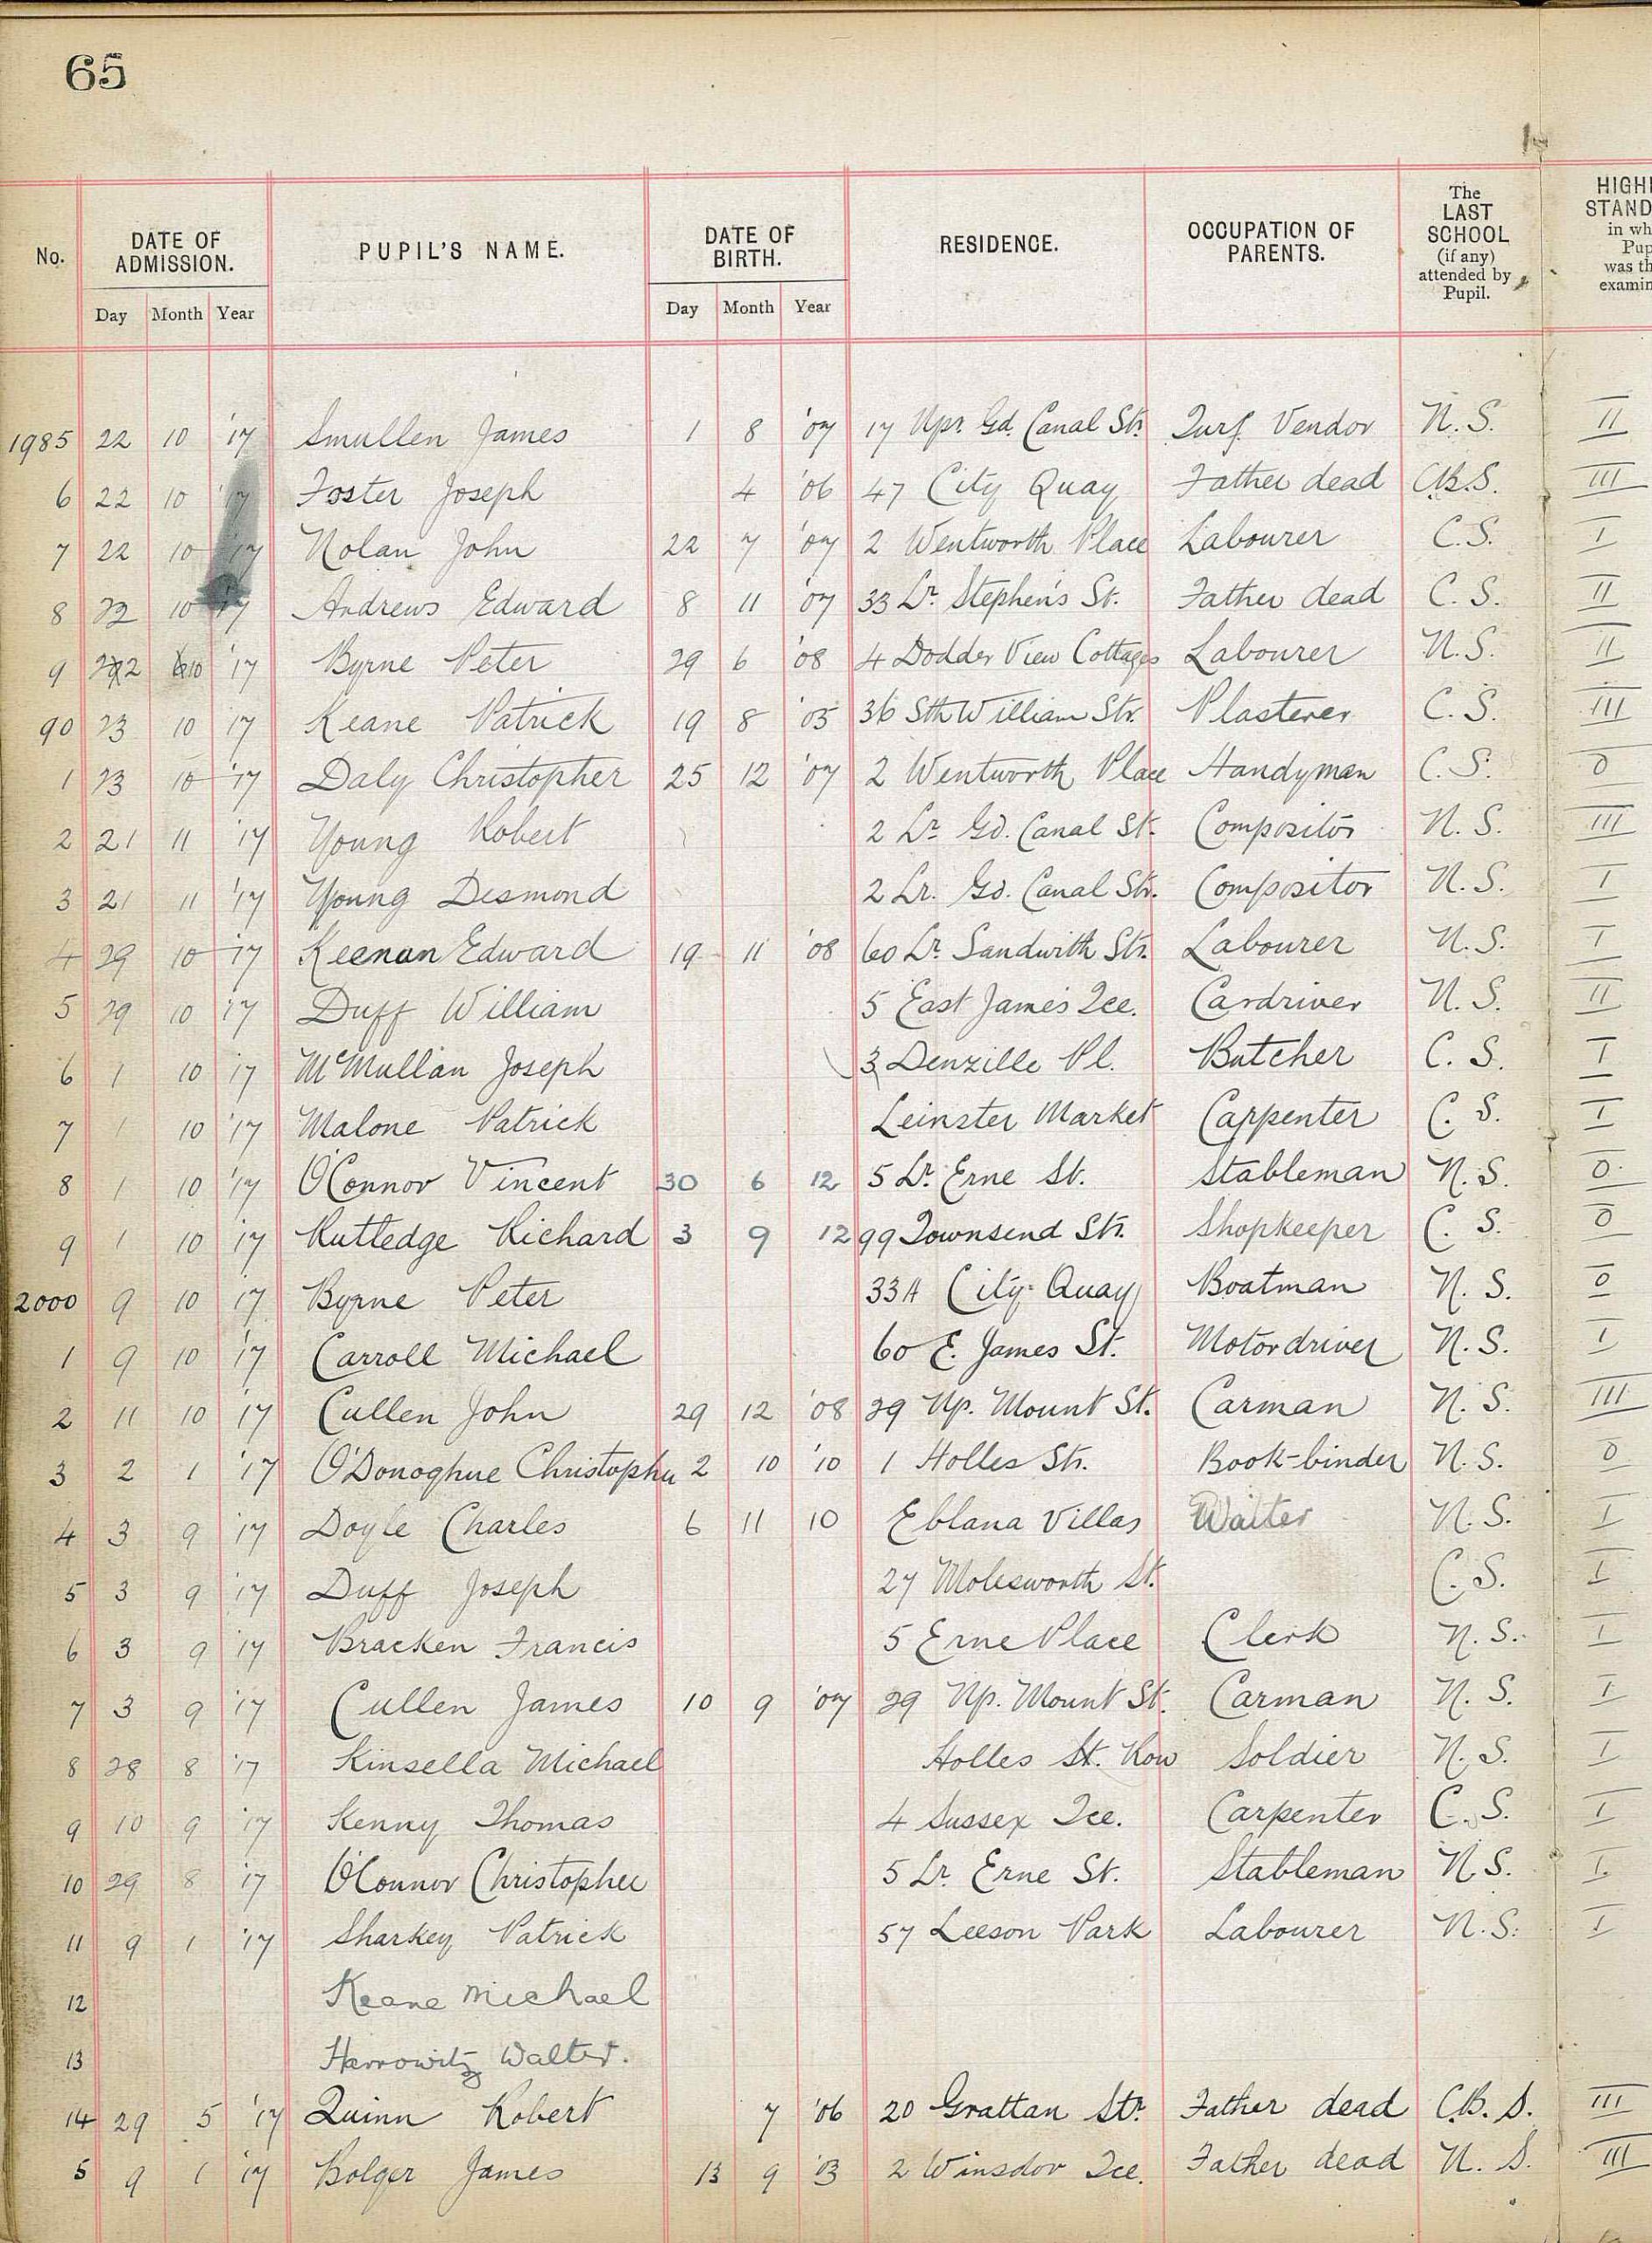 65
No.
DATE OF ADMISSION.
Day Month Year
PUPIL'S NAME.
DATE OF BIRTH.
Day Month Year
RESIDENCE.
OCCUPATION OF PARENTS.
The LAST SCHOOL (if any) attended by Pupil.
HIGH
STAND
in wh
Pup
was th
examin
1985 22 10 '17 Smullen James 1 8 '07 17 Upr. Gd. Canal Str. Turf Vendor N.S. II
6 22 10 '17 Foster Joseph 4 '06 47 City Quay Father dead C.B.S. III
7 22 10 '17 Nolan John 22 7 '07 2 Wentworth Place Labourer C.S. I
8 22 10 '17 Andrews Edward 8 11 '07 33 Lr. Stephen's St. Father dead C.S. II
9 22 10 '17 Byrne Peter 29 6 '08 4 Dodder View Cottages Labourer N.S. II
90 23 10 '17 Keane Patrick 19 8 '05 36 Sth William Str. Plasterer C.S. III
1 23 10 '17 Daly Christopher 25 12 '07 2 Wentworth Place Handyman C.S. 0
2 21 11 '17 Young Robert 2 Lr. Gd. Canal St. Compositor N.S. III
3 21 11 '17 Young Desmond 2 Lr. Gd. Canal Str. Compositor N.S. I
4 29 10 '17 Keenan Edward 19 11 '08 60 Lr. Sandwith Str. Labourer N.S. I
5 29 10 '17 Duff William 5 East James Tce. Cardriver N.S. II
6 1 10 '17 McMullan Joseph 3 Denzille Pl. Butcher C.S. I
7 1 10 '17 Malone Patrick Leinster Market Carpenter C.S. I
8 1 10 '17 O'Connor Vincent 30 6 12 5 Lr. Erne St. Stableman N.S. 0
9 1 10 '17 Rutledge Richard 3 9 12 99 Townsend Str. Shopkeeper C.S. 0
2000 9 10 '17 Byrne Peter 33A City Quay Boatman N.S. 0
1 9 10 '17 Carroll Michael 60 E. James St. Motordriver N.S. I
2 11 10 '17 Cullen John 29 12 '08 29 Up. Mount St. Carman N.S. III
3 2 1 '17 O'Donoghue Christopher 2 10 '10 1 Holles Str. Book-binder N.S. 0
4 3 9 '17 Doyle Charles 6 11 10 Eblana Villas Waiter N.S. I
5 3 9 '17 Duff Joseph 27 Molesworth St. C.S. I
6 3 9 '17 Bracken Francis 5 Erne Place Clerk N.S. I
7 3 9 '17 Cullen James 10 9 '07 29 Up. Mount St. Carman N.S. I
8 28 8 '17 Kinsella Michael Holles St. Row Soldier N.S. I
9 10 9 '17 Kenny Thomas 4 Sussex Tce. Carpenter C.S. I
10 29 8 '17 O'Connor Christopher 5 Lr. Erne St. Stableman N.S. I
11 9 1 '17 Sharkey Patrick 57 Leeson Park Labourer N.S. I
12 Keane Michael
13 Herrowitz Walter.
14 29 5 '17 Quinn Robert 7 '06 20 Grattan Str. Father dead C.B.S. III
5 9 1 '17 Bolger James 13 9 '03 2 Winsdor Tce. Father dead N.S. III